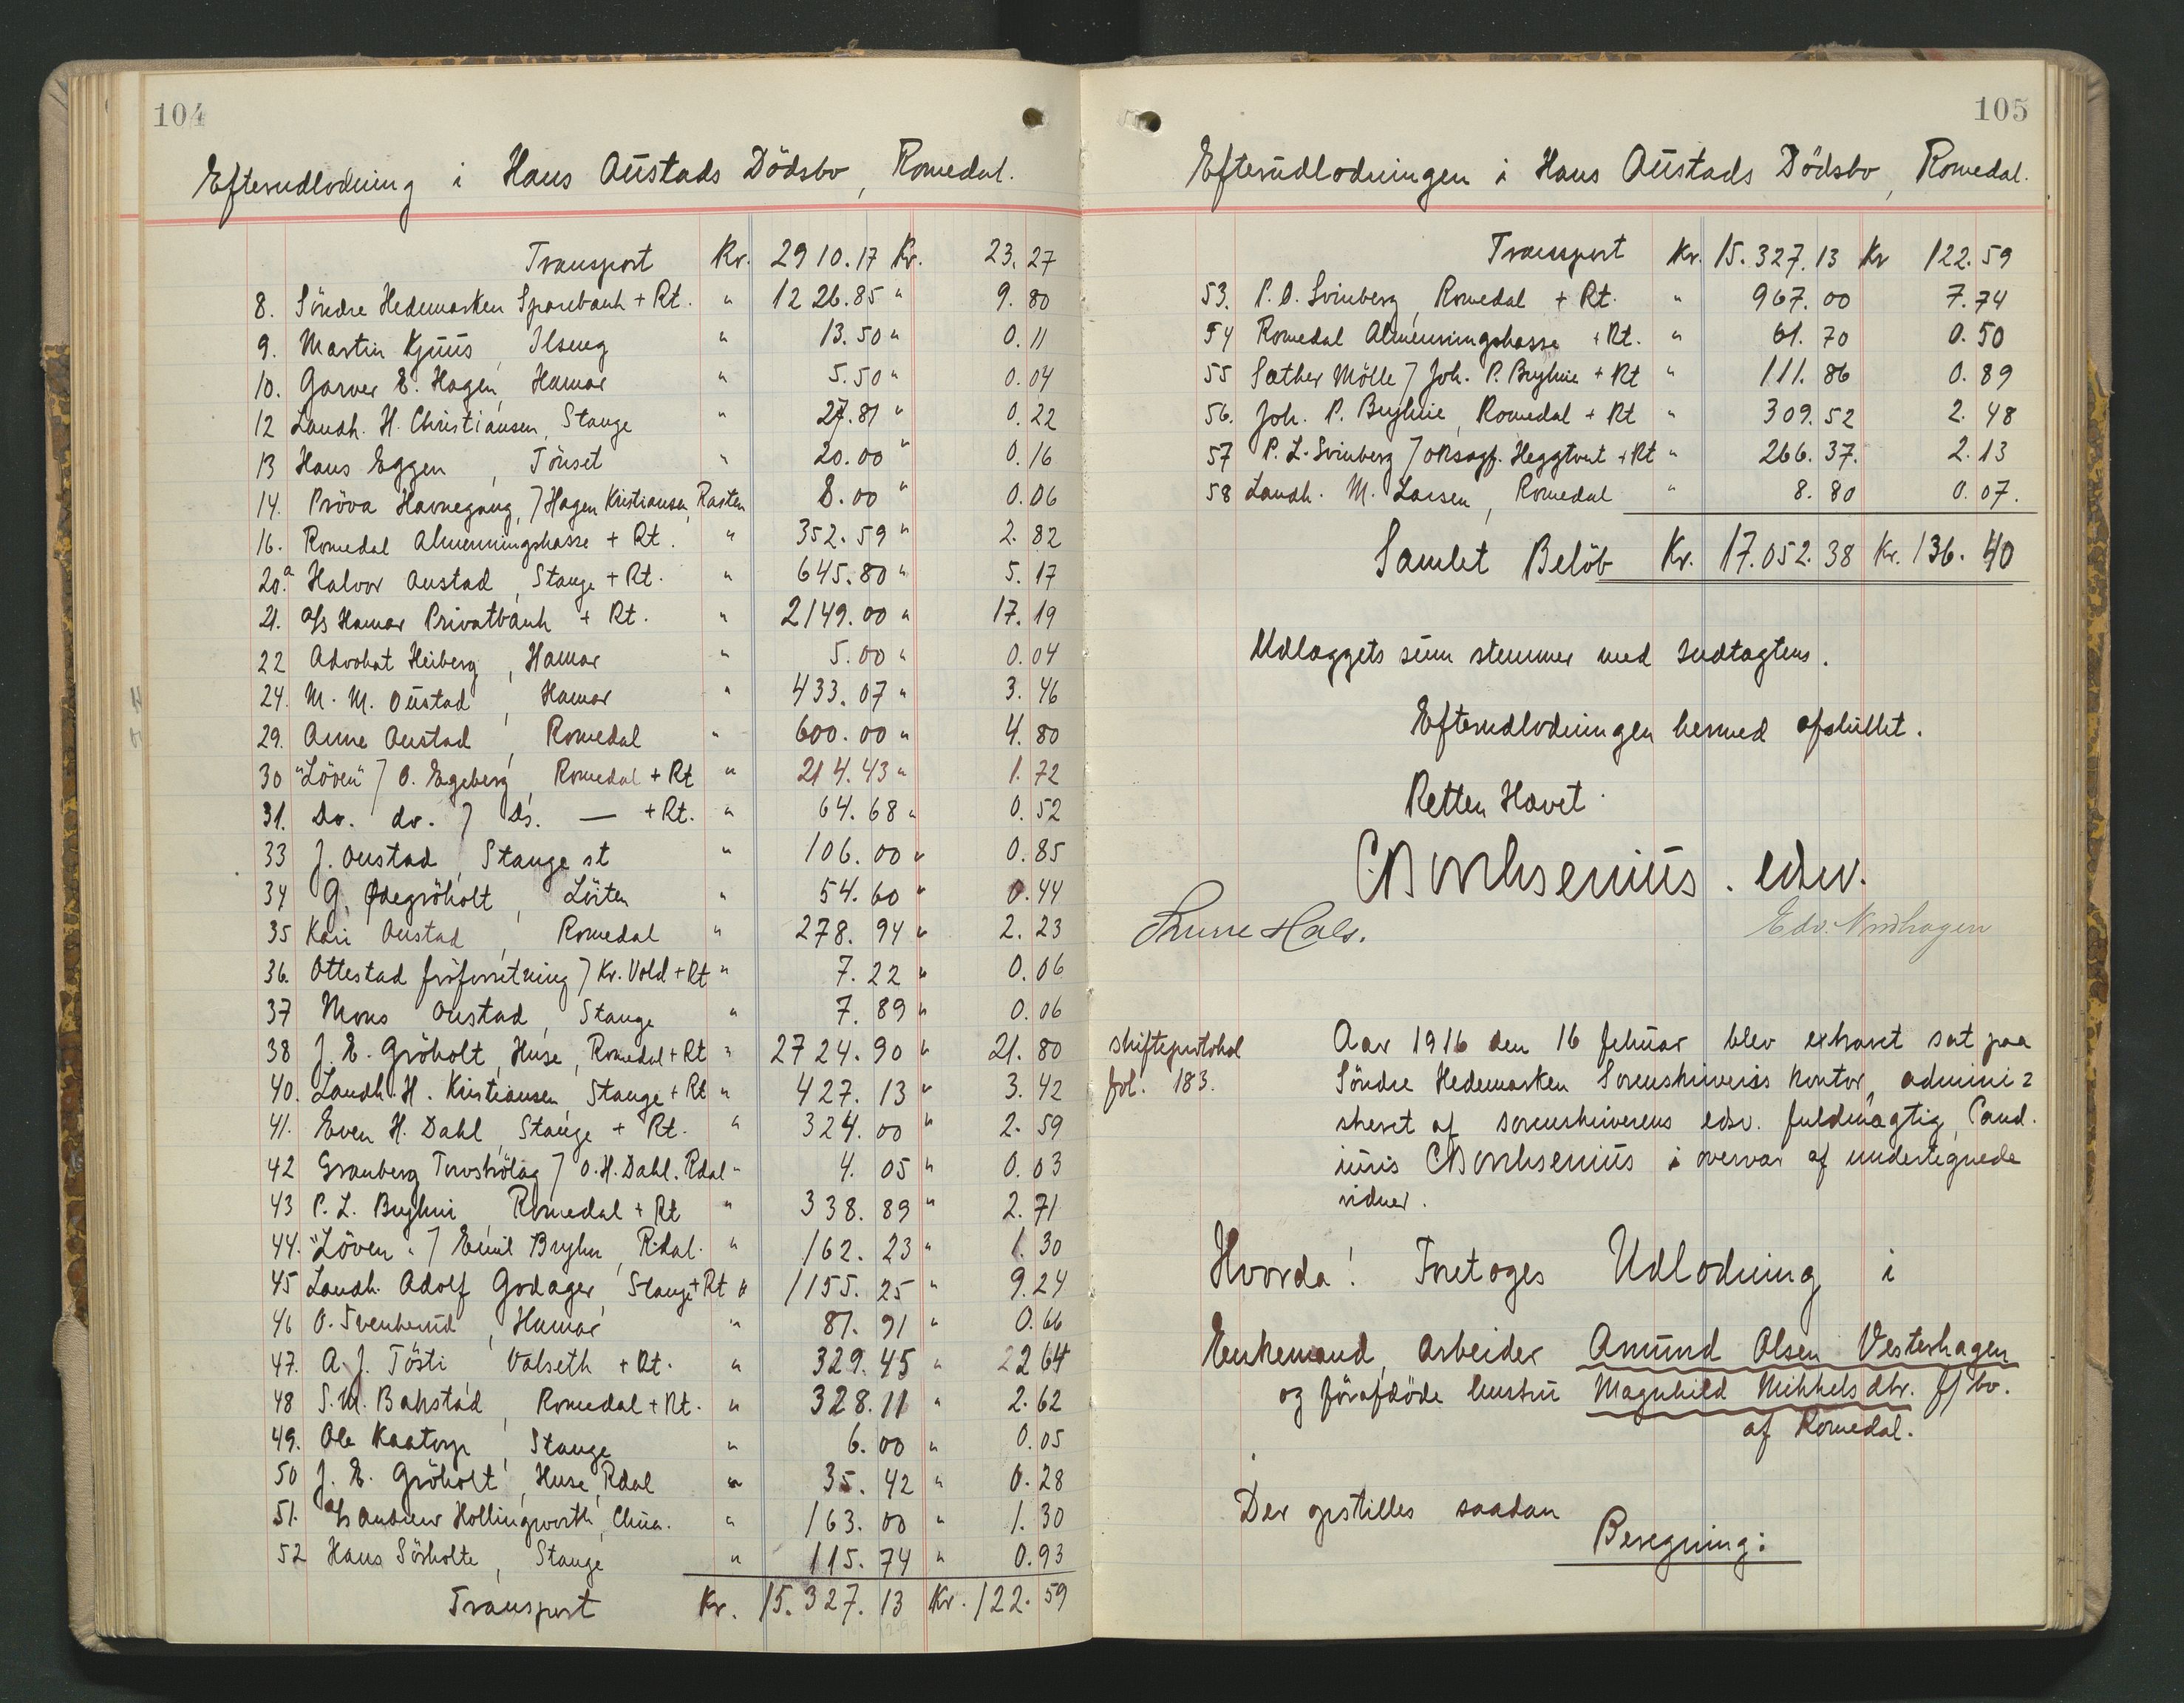 104
Efterudlodning i Hans Austads Dödsbo, Romedal.
Transport Kr. 2910.17 Kr. 23.27
8. Söndre Hedemarken Sparebank + Rt. " 1226.85 " 9.80
9. Martin Kjuus, Ilseng " 13.50 " 0.11
10. Garver E. Hagen, Hamar " 5.50 " 0.04
12 Landh. H. Christiansen, Stange " 27.81 " 0.22
13 Hans Eggen, Tönset " 20.00 " 0.16
14. Pröva Havnegang, / Hagen Kristiansen, Rasten 8.00 " 0.06
16. Romedal Almenningskasse + Rt. " 352.59 " 2.82
20a. Halvor Austad, Stange + Rt. " 645.80 " 5.17
21. A/s Hamar Privatbank + Rt. " 2149.00 " 17.19
22 Advokat Heiberg, Hamar " 5.00 " 0.04
24. M. M. Oustad, Hamar " 433.07 " 3.46
29. Anne Austad, Romedal " 600.00 " 4.80
30 "Löven" / O. Egeberg, Romedal + Rt " 214.43 " 1.72
31. Do. do. / Ds. — + Rt. " 64.68 " 0.52
33 J. Oustad, Stange st " 106.00 " 0.85
34 G. Ødegröholt, Löiten " 54.60 " 0.44
35 Kari Oustad, Romedal " 278.94 " 2.23
36. Ottestad fröforretning / Kr. Vold + Rt " 7.22 " 0.06
37 Mons Oustad, Stange " 7.89 " 0.06
38 J. E. Gröholt, Huse, Romedal + Rt " 2724.90 " 21.80
40. Landh. H. Kristiansen, Stange + Rt " 427.13 " 3.42
41. Even H. Dahl, Stange + Rt. " 324.00 " 2.59
42 Granberg Torvströlag / O. H. Dahl. Rdal " 4.05 " 0.03
43 P. L. Bryhni, Romedal + Rt " 338.89 " 2.71
44. "Löven" / Emil Bryhn, R.dal. " 162.23 " 1.30
45 Landh. Adolf Godager, Stange + Rt " 1155.25 " 9.24
46 O. Svenkerud, Hamar " 81.91 " 0.66
47. A. J. Tösti, Valseth + Rt. " 329.45 " 2 64
48 S. M. Bakstad, Romedal + Rt. " 328.11 " 2.62
49. Ole Kaatorp, Stange " 6.00 " 0.05
50 J. E. Gröholt, Huse, Rdal " 35.42 " 0.28
51. A/s Andrew Hollingworth, Chria. " 163.00 " 1.30
52 Hans Sörholte, Stange " 115.74 " 0.93
Transport Kr. 15.327.13 Kr. 122.59
105
Efterudlodningen i Hans Austads Dödsbo, Romedal.
Transport Kr. 15.327.13 Kr 122.59
53. P. O. Svinberg, Romedal + Rt. " 967.00 7.74
54 Romedal Almenningskasse + Rt. " 61.70 0.50
55 Sæther Mölle / Joh. P. Bryhnie + Rt " 111.86 0.89
56. Joh. P. Bryhnie, Romedal + Rt " 309.52 2.48
57 P. L. Svinberg / ORsagf. Heggtveit + Rt " 266.37. 2.13
58 Landh. M. Larsen, Romedal " 8.80 0.07.
Samlet Belöb Kr. 17.052.38 Kr. 136.40
Udlæggets sum stemmer med Indtægtens.
Efterudlodningen hermed afsluttet.
Retten Hævet.
CBorchsenius. edsv.
Hals. Edv. Nordhagen
skifteprotokol
fol. 183.
Aar 1916 den 16 februar blev extraret sat paa
Söndre Hedemarken Sorenskriveris kontor, admini=
streret af sorenskriverens edsv. fuldmægtig, Cand.
iuris CBorchsenius i overvær af undertegnede
vidner.
Hvorda! Foretoges Udlodning i
Enkemand, arbeider Amund Olsen Vesterhagen
og förafdöde hustru Magnhild Mikkelsdtr. f/bo.
af Romedal.
Der opstilles saadan
Beregning: